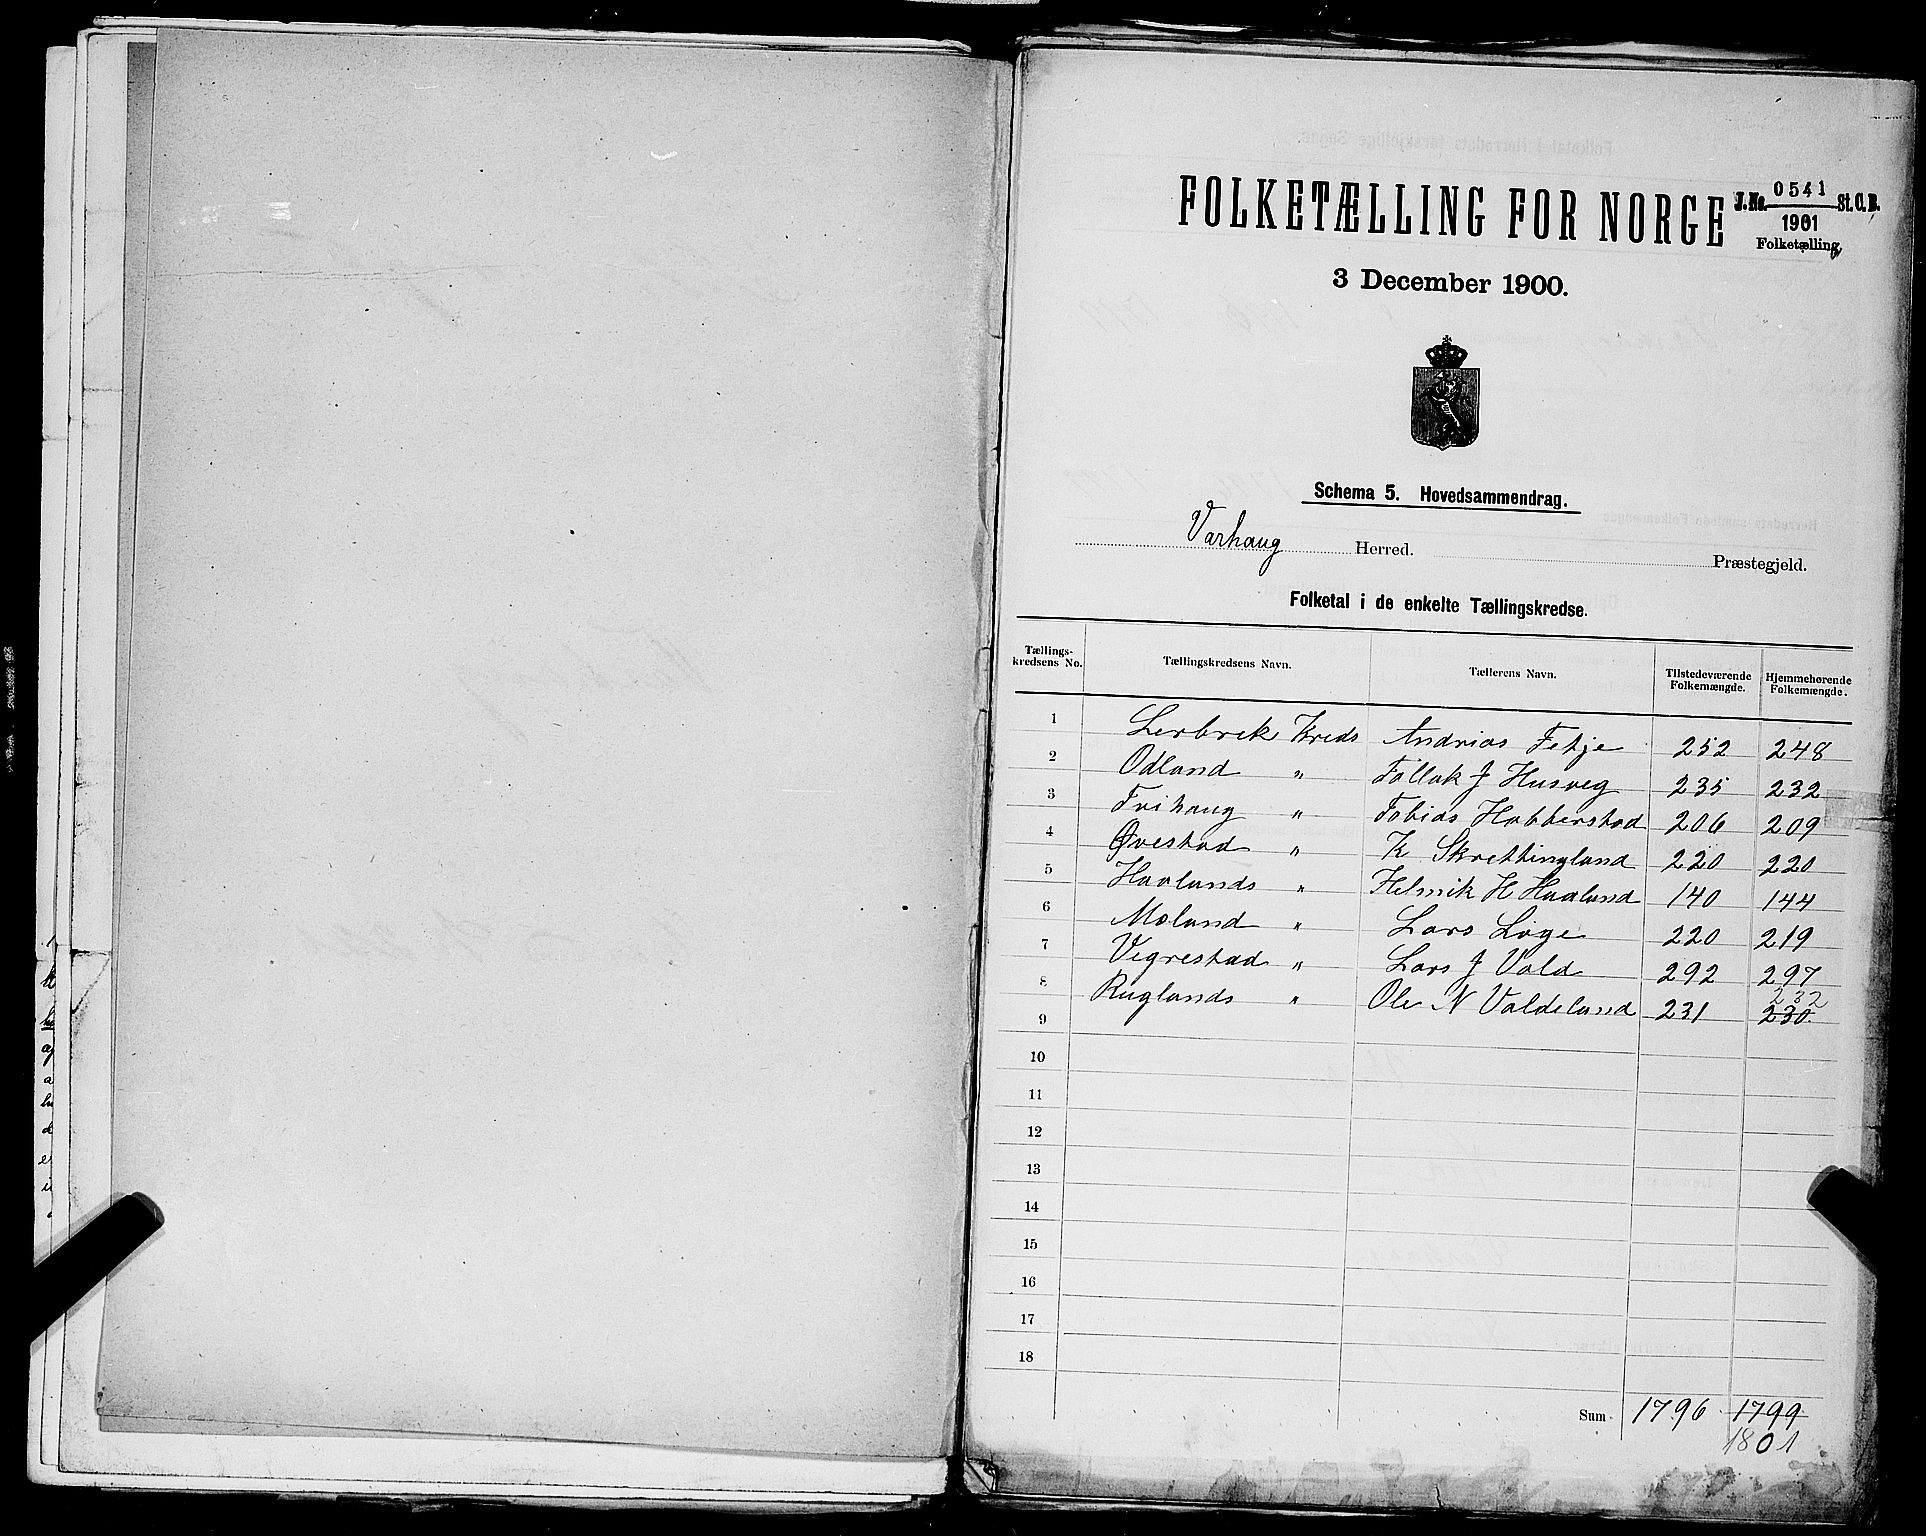 FOLKETÆLLING FOR NORGE
J.No. 0541 St.C.B.
1901
Folketælling
3 December 1900.
Schema 5. Hovedsammendrag.
Varhaug Herred. Præstegjeld.
Folketal i de enkelte Tællingskredse.
Tællings-kredsens No. Tællingskredsens Navn. Tællerens Navn. Tilstedeværende Folkemængde. Hjemmehørende Folkemængde.
1 Lerbrek Kreds Andrias Fetje 252 248
2 Odland " Tollak J Husveg 235 232
3 Tvihaug " Tobias Habberstad 206 209
4 Øvestad " K Skrettingland 220 220
5 Havlands " Helmik H Haaland 140 144
6 Moland " Lars Lige 220 219
7 Vegrestad " Lars J Vold 292 297
8 Ruglands " Ole N Valdeland 231 230.
232
9
10
11
12
13
14
15
16
17
18
Sum 1796 1799
1801